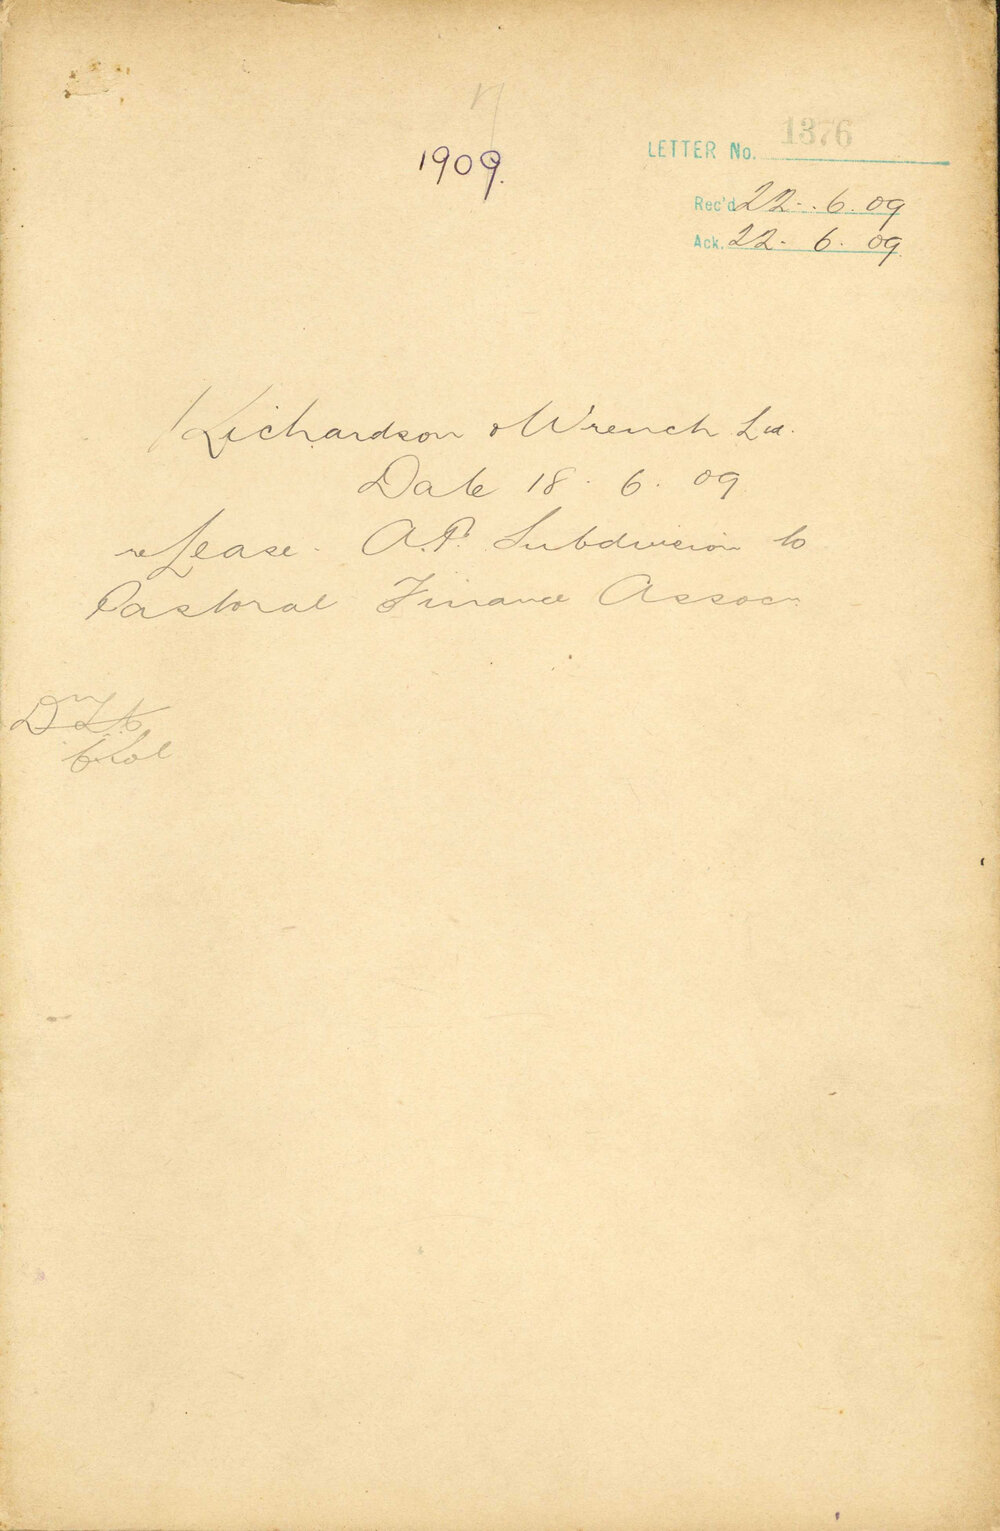 1909.
LETTER No. 1376
Rec'd 22. 6. 09
Ack. 22. 6. 09
Richardson & Wrench Ltd.
Date 18. 6. 09
re Lease. A.P. Subdivision to
Pastoral Finance Assocn.